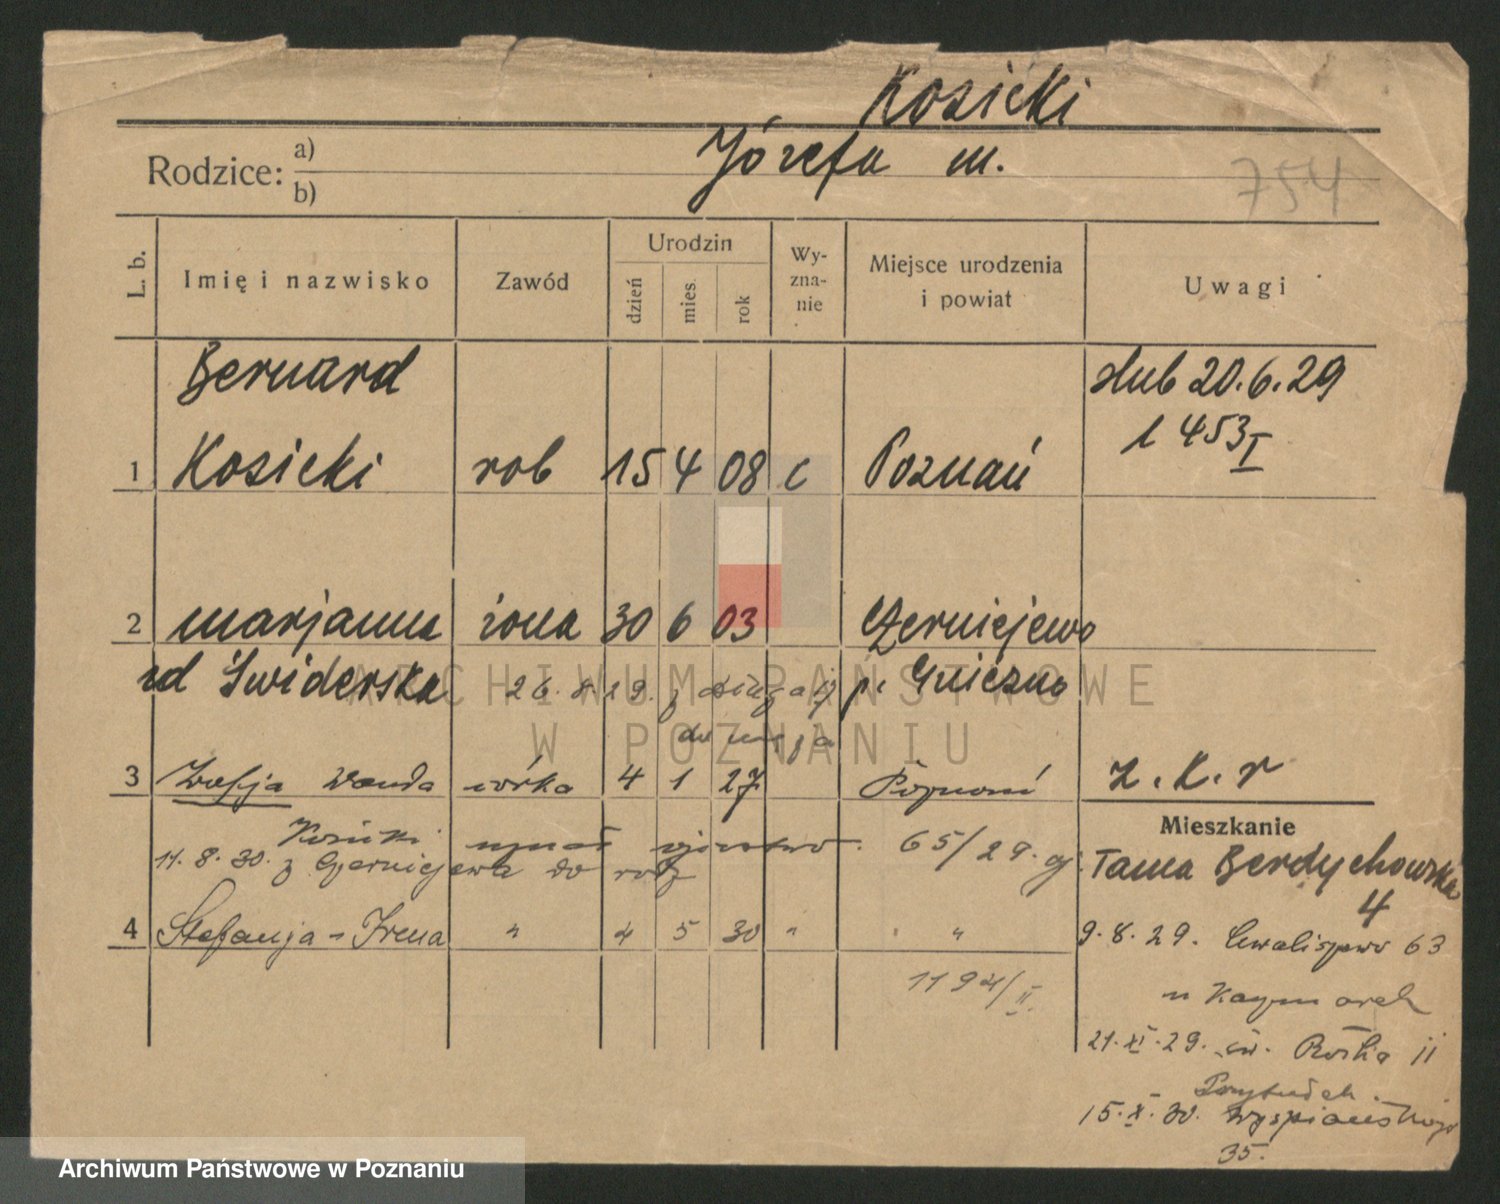 Kosicki
Rodzice: a)
b)
Józefa m.
754
L. b.
Imię i nazwisko
Zawód
Urodzin
dzień
mies.
rok
Wy-
zna-
nie
Miejsce urodzenia
i powiat
Uwagi
Bernard
ślub 20.6.29
1 453 I
1 Kosicki rob 15 4 08 c Poznań
2 Marjanna żona 30 6 03 Czerniejewo
zd Świderska p. Gniezno
26. 8. 29. z
ARCHIWUM PAŃSTWOWE
W POZNANIU
3 Zofja Wanda córka 4 1 27 Poznań
z. K. r
Mieszkanie
Kosicki uznał ojcostwo. 65/29.
11. 8. 30. z Czerniejewa do rodz
Tama Berdychowska
4
4 Stefanja - Irena " 4 5 30 " "
9. 8. 29. Chwaliszewo 63
u Kaczmarek
1194/II.
21. XI. 29. św. Rocha 11
15. X. 30. Wyspiańskiego
35.
Archiwum Państwowe w Poznaniu